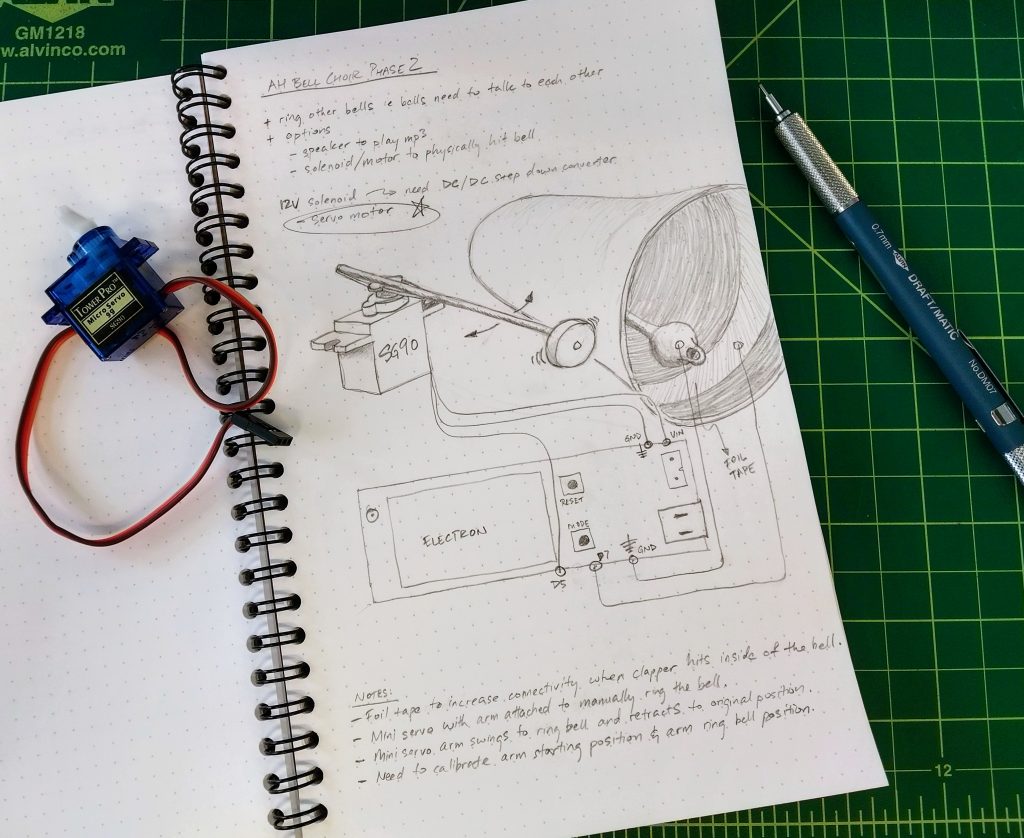 GM1218
w.alvinco.com
AH BELL CHOIR PHASE 2
+ ring other bells ie bells need to talk to each other
+ options
- speaker to play mp3
- solenoid/motor to physically hit bell
12V solenoid → need DC/DC step down converter
- servo motor ☆
TOWER PRO™
Micro Servo
9g
SG90
SG90
GND
VIN
FOIL
TAPE
RESET
MODE
ELECTRON
GND
D7
D5
NOTES:
- Foil tape to increase conectivity when clapper hits inside of the bell.
- Mini servo with arm attached to manually ring the bell.
- Mini servo arm swings to ring bell and retracts to original position.
- Need to calibrate arm starting position & arm ring bell position.
0.7mm
DRAFT/MATIC
No.DM07
12